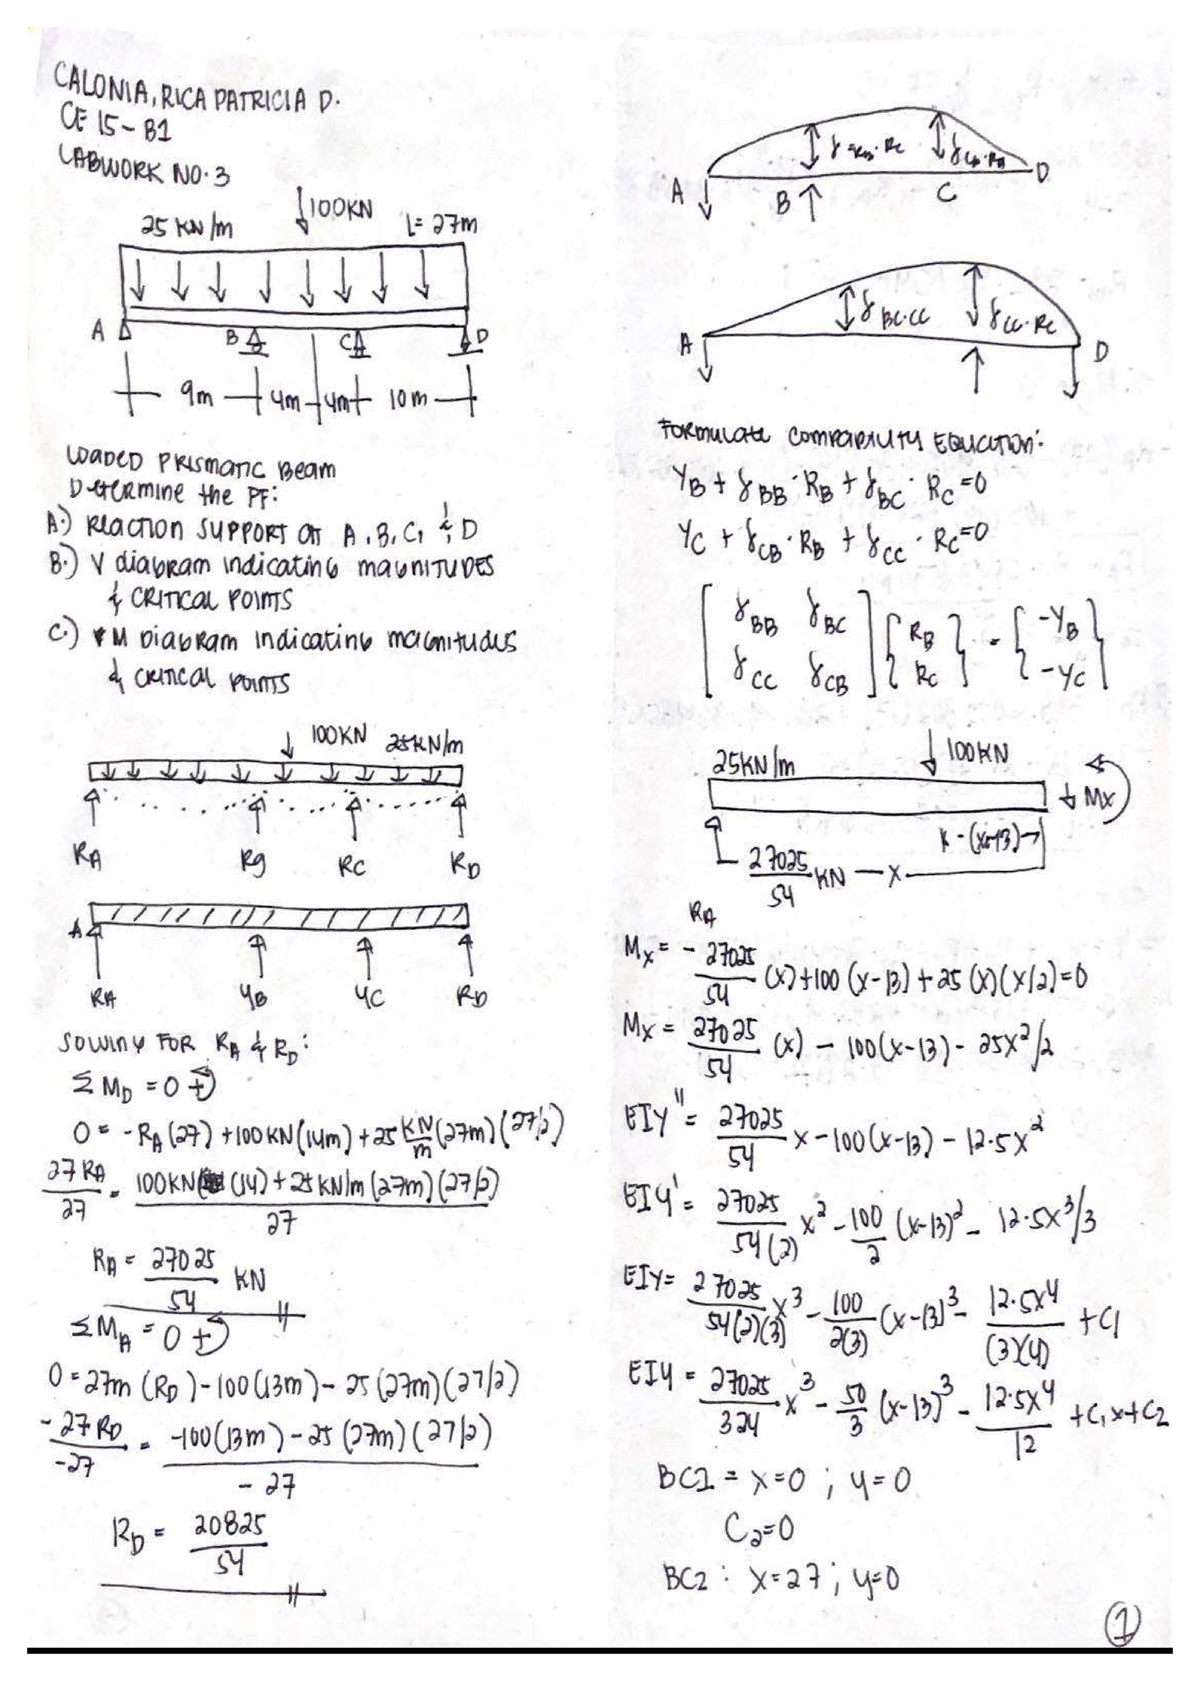 CALONIA, RICA PATRICIA D.
CE 15-B1
LABWORK NO. 3
100KN
25 KN/m
L= 27m
A
B
C
D
9m
4m
4m
10m
LOADED PRISMATIC BEAM
DETERMINE the PF:
A.) REACTION SUPPORT at A, B, C, & D
B.) V diagram indicating magnitudes
& CRITICAL POINTS
C.) M Diagram indicating magnitudes
& CRITICAL POINTS
100KN
25KN/m
RA
RB
RC
RD
A
RA
YB
YC
RD
SOLVING FOR RA & RD:
ΣMD = 0
0 = -RA (27) + 100KN (14m) + 25 KN/m (27m) (27/2)
27 RA / 27 = 100KN (14) + 25 KN/m (27m) (27/2) / 27
RA = 27025/54 KN
ΣMA = 0
0 = 27m (RD) - 100 (13m) - 25 (27m) (27/2)
-27 RD / -27 = -100 (13m) - 25 (27m) (27/2) / -27
RD = 20825/54
A
B
C
D
A
δBC·CC
δCC·RC
D
FORMULATE COMPATIBILITY EQUATION:
YB + δBB · RB + δBC · RC = 0
YC + δCB · RB + δCC · RC = 0
[δBB δBC] {RB} = {-YB}
[δCC δCB] {RC} {-YC}
25KN/m
100KN
Mx
(x-13)
27025/54 KN — X
RA
Mx = - 27025/54 (x) + 100 (x-13) + 25 (x)(x/2) = 0
Mx = 27025/54 (x) - 100(x-13) - 25x²/2
EIY" = 27025/54 x - 100(x-13) - 12.5x²
EIY' = 27025/54(2) x² - 100/2 (x-13)² - 12.5x³/3
EIY = 27025/54(2)(3) x³ - 100/2(3) (x-13)³ - 12.5x⁴/(3)(4) + C1
EIY = 27025/324 x³ - 50/3 (x-13)³ - 12.5x⁴/12 + C1x + C2
BC1 = x=0 ; y=0
C2=0
BC2 : x=27 ; y=0
1